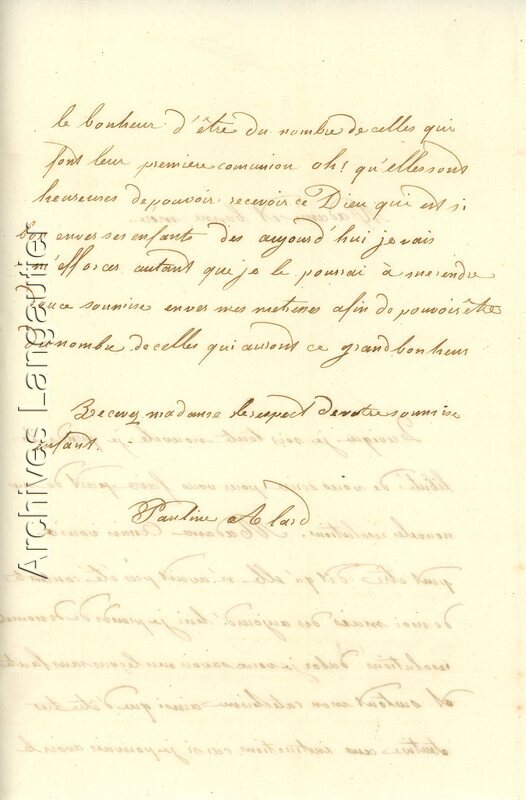 le bonheur d'être du nombre de celles qui
font leur premiere comunion oh! qu'elles sont
heureuses de pouvoir recevoir ce Dieu qui est si
bon enver ses enfants des aujourd'hui je vais
m'efforcer autant que je le pourrai à me rendre
douce soumise enver mes metreses afin de pouvoir être
du nombre de celles qui auront ce grand bonheur
Recevez madame le respect de votre soumise
enfant
Pauline Alard
Archives Langautier